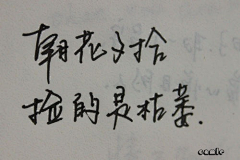 朝花夕拾
捡的是枯萎.